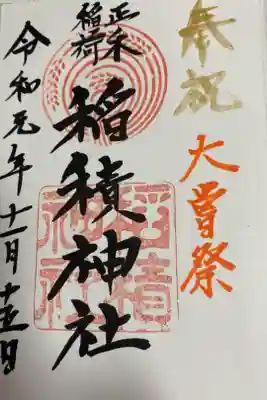 奉祝
大嘗祭
正一位
稲荷
稲積神社
令和元年十一月十五日
稲積
神社